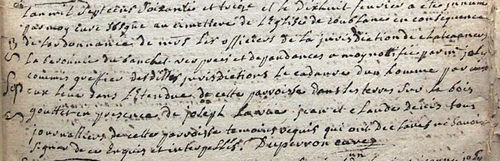 Lan mil sept cens soixante et treze et le dixhuit janvier a ete inhume
par moy curé sosigné au cimettere de l'Eglise de en consequence
de lordonnance de mrs les officiers de la jurisdiction de
la baronnie du banchet ses pres et dependances a moy notifiée par mr
commis greffier des dittes jurisdictions le cadavre dun homme par
eux levé dans l'étendue de cette parroisse dans les terres sur le bois
gouttet en presence de joseph jean et claude tous
journalliers de cette parroisse temoins requis qui ont declarés ne savoir
signer de ce enquis et interpellés. Duperron curé